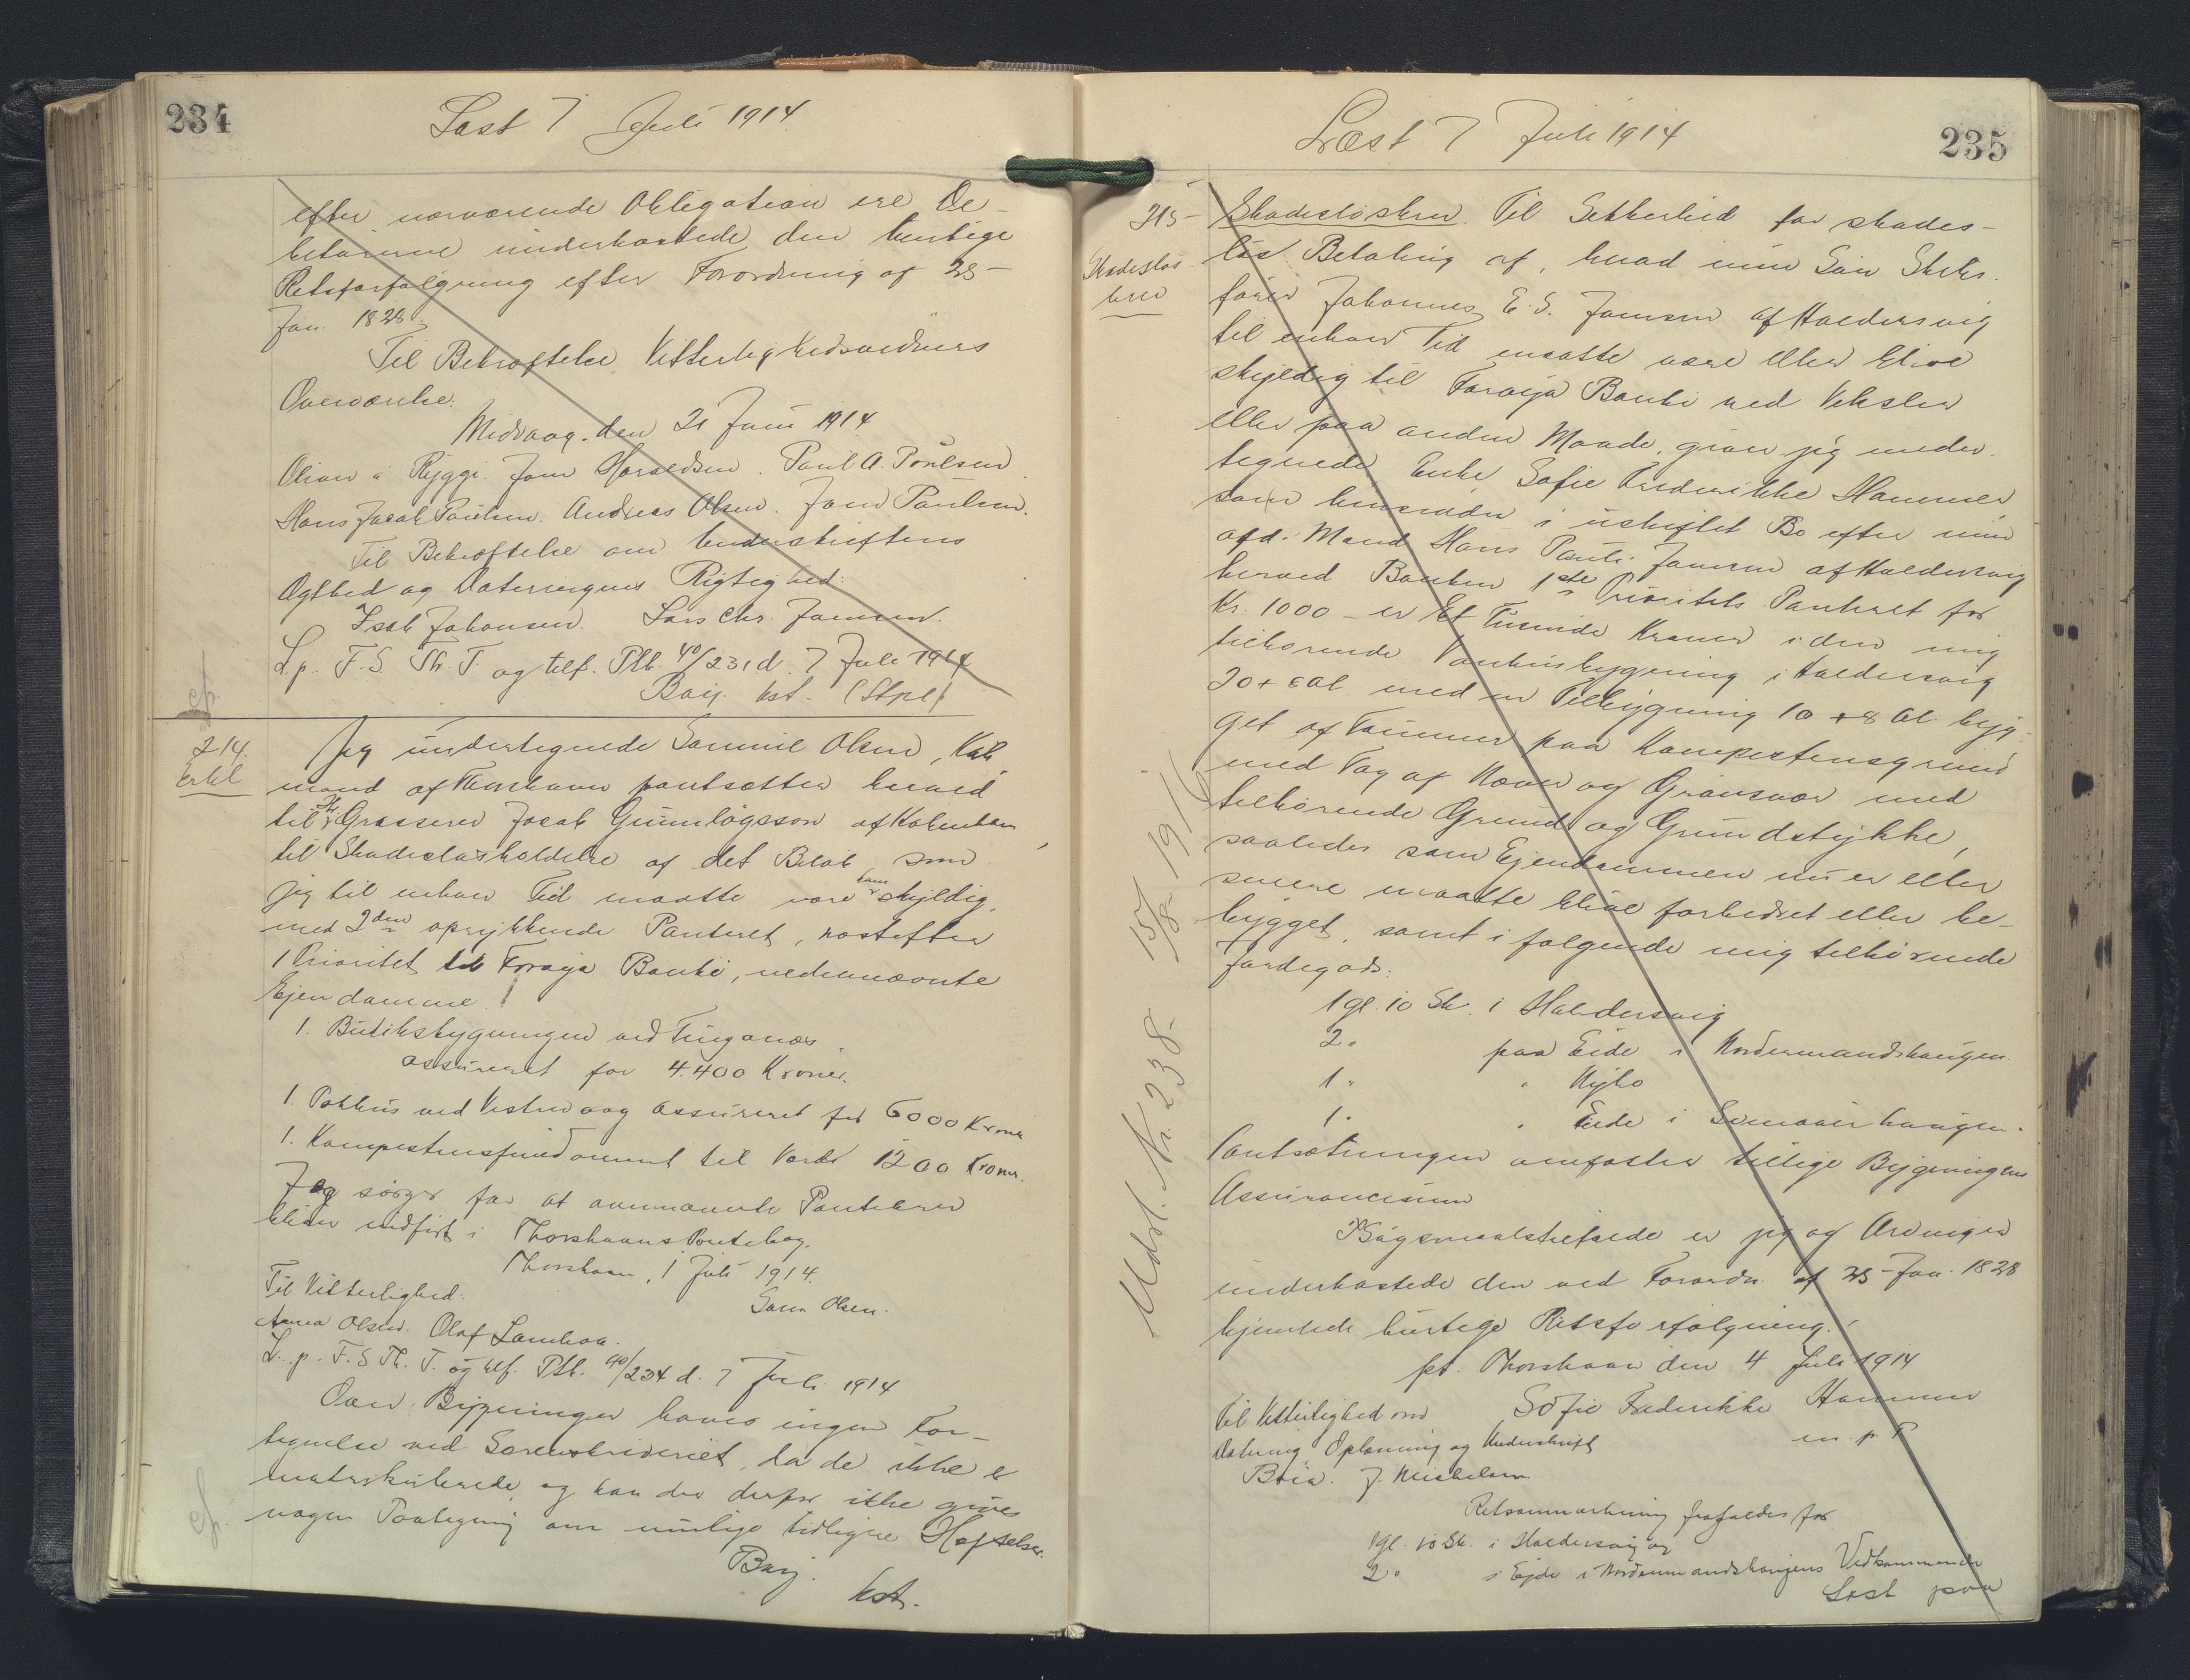 234
Læst 7 Juli 1914.
efter nærværende Obligation ere De-
bitorerne underkastede den hurtige
Retsforfølgning efter Forordning af 28-
Jan. 1828.
Til Bekræftelse Vitterlighedsvidners
Overværelse.
Midvaag. den 21 Juni 1914
Olivar a Ryggi. Joen Haraldsen. Poul A. Poulsen
Hans Jacob Poulsen. Andreas Olsen. Joen Poulsen.
Til Bekræftelse om Underskriftens
Ægthed og Dateringens Rigtighed:
Isak Johansen. Lars Chr. Joensen.
L. p. F. S. Th. T. og tilf. Ptb. 40/231 d. 7 Juli 1914
Bærj. kst. (Stpl)
cf.
214.
Extl
Jeg undertegnede Samuel Olsen, Køb
mand af Thorshavn pantsætter herved
til Hr Grosserer Jacob Gunnløgsson af København,
til Skadesløsholdelse af det Beløb som
jeg til enhver Tid maatte være ham skyldig,
med 2den oprykkende Panteret, næstefter
1 Prioritet til Føroya Banki, nedennævnte
Ejendomme
1. Butiksbygningen ved Tinganæs
assureret for 4.400 Kroner.
1. Pakhus ved Vestervaag assureret for 6000 Kroner
1. Kampestensfundament til Værdi 1200 Kroner.
Jeg sørger for at ovennævnte Pantebrev
bliver indført i Thorshavns Pantebog.
Thorshavn, 1 Juli 1914.
Til Vitterlighed:
Sam Olsen.
Anna Olsen. Olaf Lamhøa.
L. p. F. S Th. T. og tilf. Ptb. 40/234 d. 7 Juli 1914
Over Bygninger haves ingen For-
tegnelse ved Sorenskriveriet, da de ikke er
matrikulerede, og kan der derfor ikke gives
nogen Paategning om mulige tidligere Hæftelser.
Bærj.
kst.
cf.
Læst 7 Juli 1914
235
215-
Skadesløs
brev
Skadesløsbrev. Til Sikkerhed for skades-
løs Betaling af, hvad min Søn Skibs-
fører Johannes E. S. Joensen af Haldersvig
til enhver Tid maatte være eller blive
skyldig til Føroya Banki ved Veksler
eller paa anden Maade, giver jeg under-
tegnede Enke Sofie Frederikke Hammer
som hensidder i uskiftet Bo efter min
afd. Mand Hans Pauli Joensen af Haldersvig
herved Banken 1ste Prioritets Panteret for
Kr. 1000 - er Et Tusinde Kroner i den mig
tilhørende Vaaningsbygning i Haldersvig
20 + 8 Al med en Tilbygning 10 + 8 Al. byg-
get af Tømmer paa Kampestensgrund
med Tag af Næver og Grønsvær med
tilhørende Grund og Grundstykke,
saaledes som Ejendommen nu er eller
senere maatte blive forbedret eller be-
bygget, samt i følgende mig tilhørende
Jordegods:
1 gl. 10 Sk. i Haldersvig
2 " paa Eide i Nordermandshaugen.
1 " " Nybo
1 " " Eide i
Pantsætningen omfatter tillige Bygningens
Assurancesum
I Søgsmaalstilfælde er jeg og Arvinger
underkastede den ved Forordn. af 28 Jan. 1828
hjemlede hurtige Retsforfølgning.
pt. Thorshavn den 4 Juli 1914
Til Vitterlighed om
Sofie Frederikke Hammer
Datering Oplæsning og Underskrift
m. p. P
J. Michelsen
Retsanmærkning frafaldes for
1 gl. 10 Sk. i Haldersvig og
2 " i Ejde i Nordermandshaugens Vedkommende
Læst paa
Udsl. Nr. 238. 15/8 1916